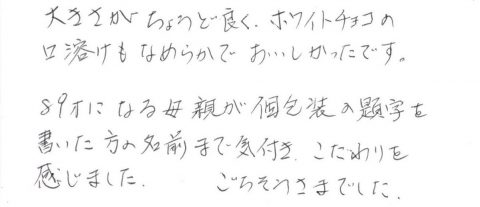 大きさがちょうど良く、ホワイトチョコの
口溶けもなめらかで おいしかったです。
89才になる母親が個包装の題字を
書いた方の名前まで気付き、こだわりを
感じました. ごちそうさまでした.